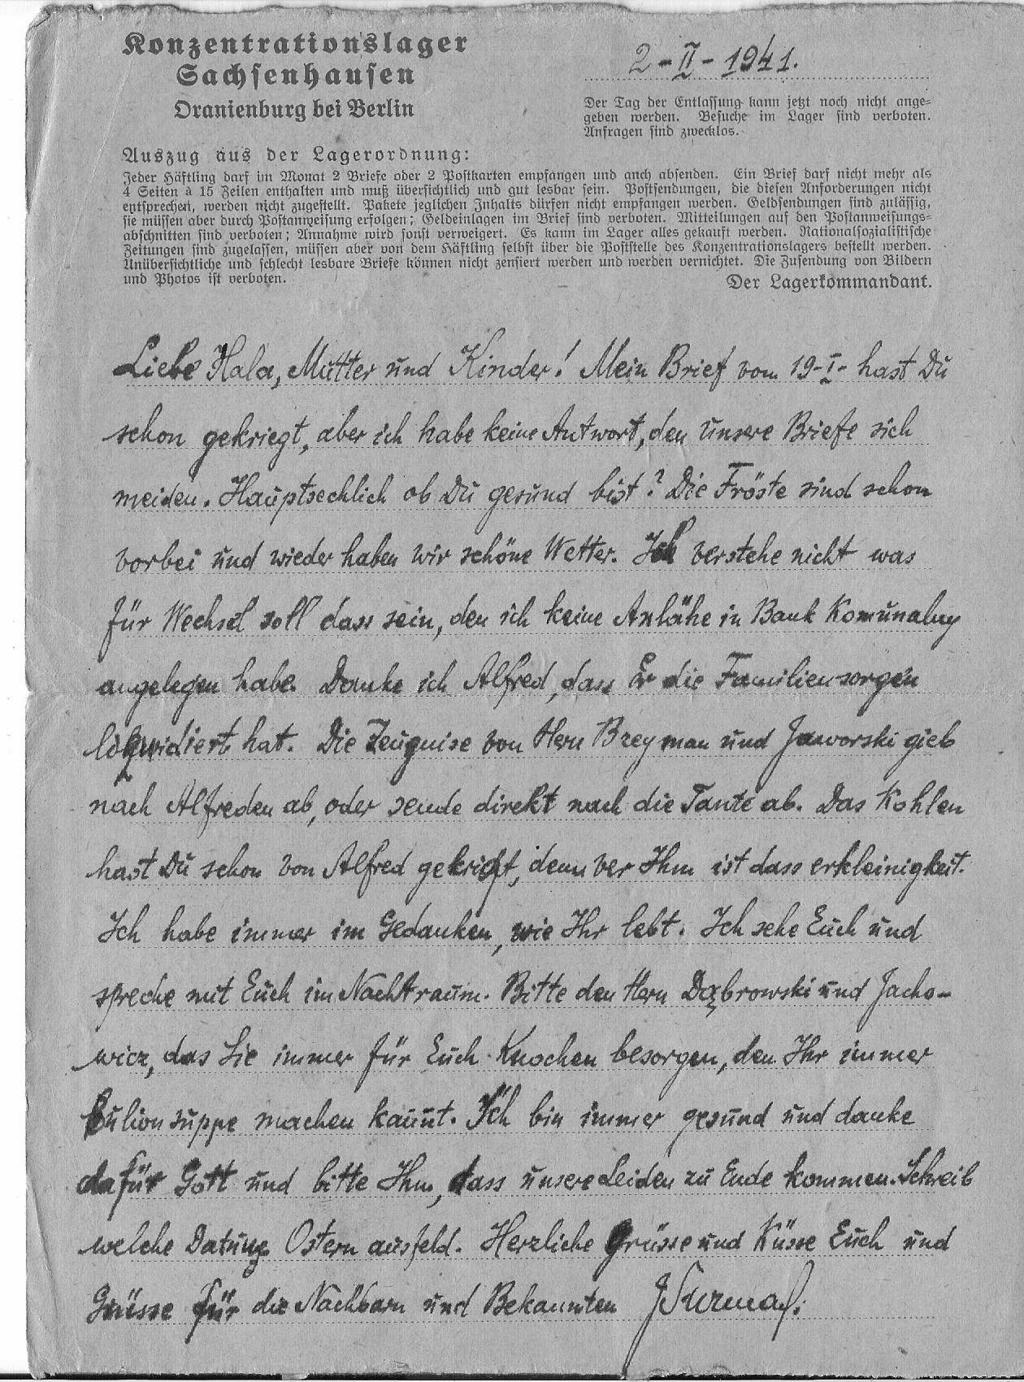 Konzentrationslager
Sachsenhausen
Oranienburg bei Berlin
2-II-1941.
Der Tag der Entlassung kann jetzt noch nicht ange=
geben werden. Besuche im Lager sind verboten.
Anfragen sind zwecklos.
Auszug aus der Lagerordnung:
Jeder Häftling darf im Monat 2 Briefe oder 2 Postkarten empfangen und auch absenden. Ein Brief darf nicht mehr als
4 Seiten à 15 Zeilen enthalten und muß übersichtlich und gut lesbar sein. Postsendungen, die diesen Anforderungen nicht
entsprechen, werden nicht zugestellt. Pakete jeglichen Inhalts dürfen nicht empfangen werden. Geldsendungen sind zulässig,
sie müssen aber durch Postanweisung erfolgen; Geldeinlagen im Brief sind verboten. Mitteilungen auf den Postanweisungs=
abschnitten sind verboten; Annahme wird sonst verweigert. Es kann im Lager alles gekauft werden. Nationalsozialistische
Zeitungen sind zugelassen, müssen aber von dem Häftling selbst über die Poststelle des Konzentrationslagers bestellt werden.
Unübersichtliche und schlecht lesbare Briefe können nicht zensiert werden und werden vernichtet. Die Zusendung von Bildern
und Photos ist verboten.
Der Lagerkommandant.
Liebe Hala, Mutter und Kinder! Mein Brief vom 19-I- hast Du
schon gekriegt, aber ich habe keine Antwort, den unsere Briefe sich
meiden. Hauptsechlich ob Du gesund bist? Die Fröste sind schon
vorbei und wieder haben wir schöne Wetter. Ich verstehe nicht was
für Wechsel soll dass sein, den ich keine in Bank Komunalny
angelegen habe. Danke ich Alfred, dass Er die Familiensorgen
liqwidiert hat. Die Zeugnise von Hern Breyman und Jaworski gieb
nach Alfreden ab, oder sende direkt nach die Tante ab. Das Kohlen
hast Du schon von Alfred gekrigt, denn ver Ihm ist dass erkleinigkeit.
Ich habe immer im Gedanken, wie Ihr lebt. Ich sehe Euch und
spreche mit Euch im Nachtraum. Bitte den Hern Dąbrowski und Jacho-
wicz, das Sie immer für Euch Knochen besorgen, den Ihr immer
bulionsuppe machen kaunt. Ich bin immer gesund und danke
dafür Gott und bitte Ihm, dass unsere Leiden zu Ende kommen. Schreib
welche Datung Ostern ausfeld. Herzliche Grüsse und Küsse Euch und
Grüsse für die Nachbarn und Bekannten